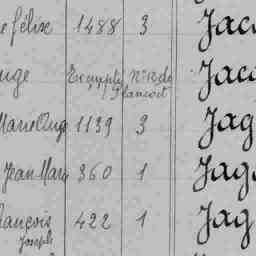 e félix 1488 3 Jac
uge Exempté N° 12 de Jac
Plancoët
Marie Ang 1139 3 Jag
Jean Marie 360 1 Jag
rançois 422 1 Jag
Joseph